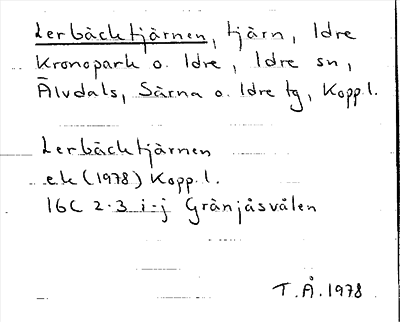 Lerbäcktjärnen, tjärn, Idre
Kronopark o. Idre, Idre sn,
Älvdals, Särna o. Idre tg, Kopp.l.
Lerbäcktjärnen
ek (1978) Kopp.l.
16C 2-3 i-j Grånjåsvålen
T.Å.1978